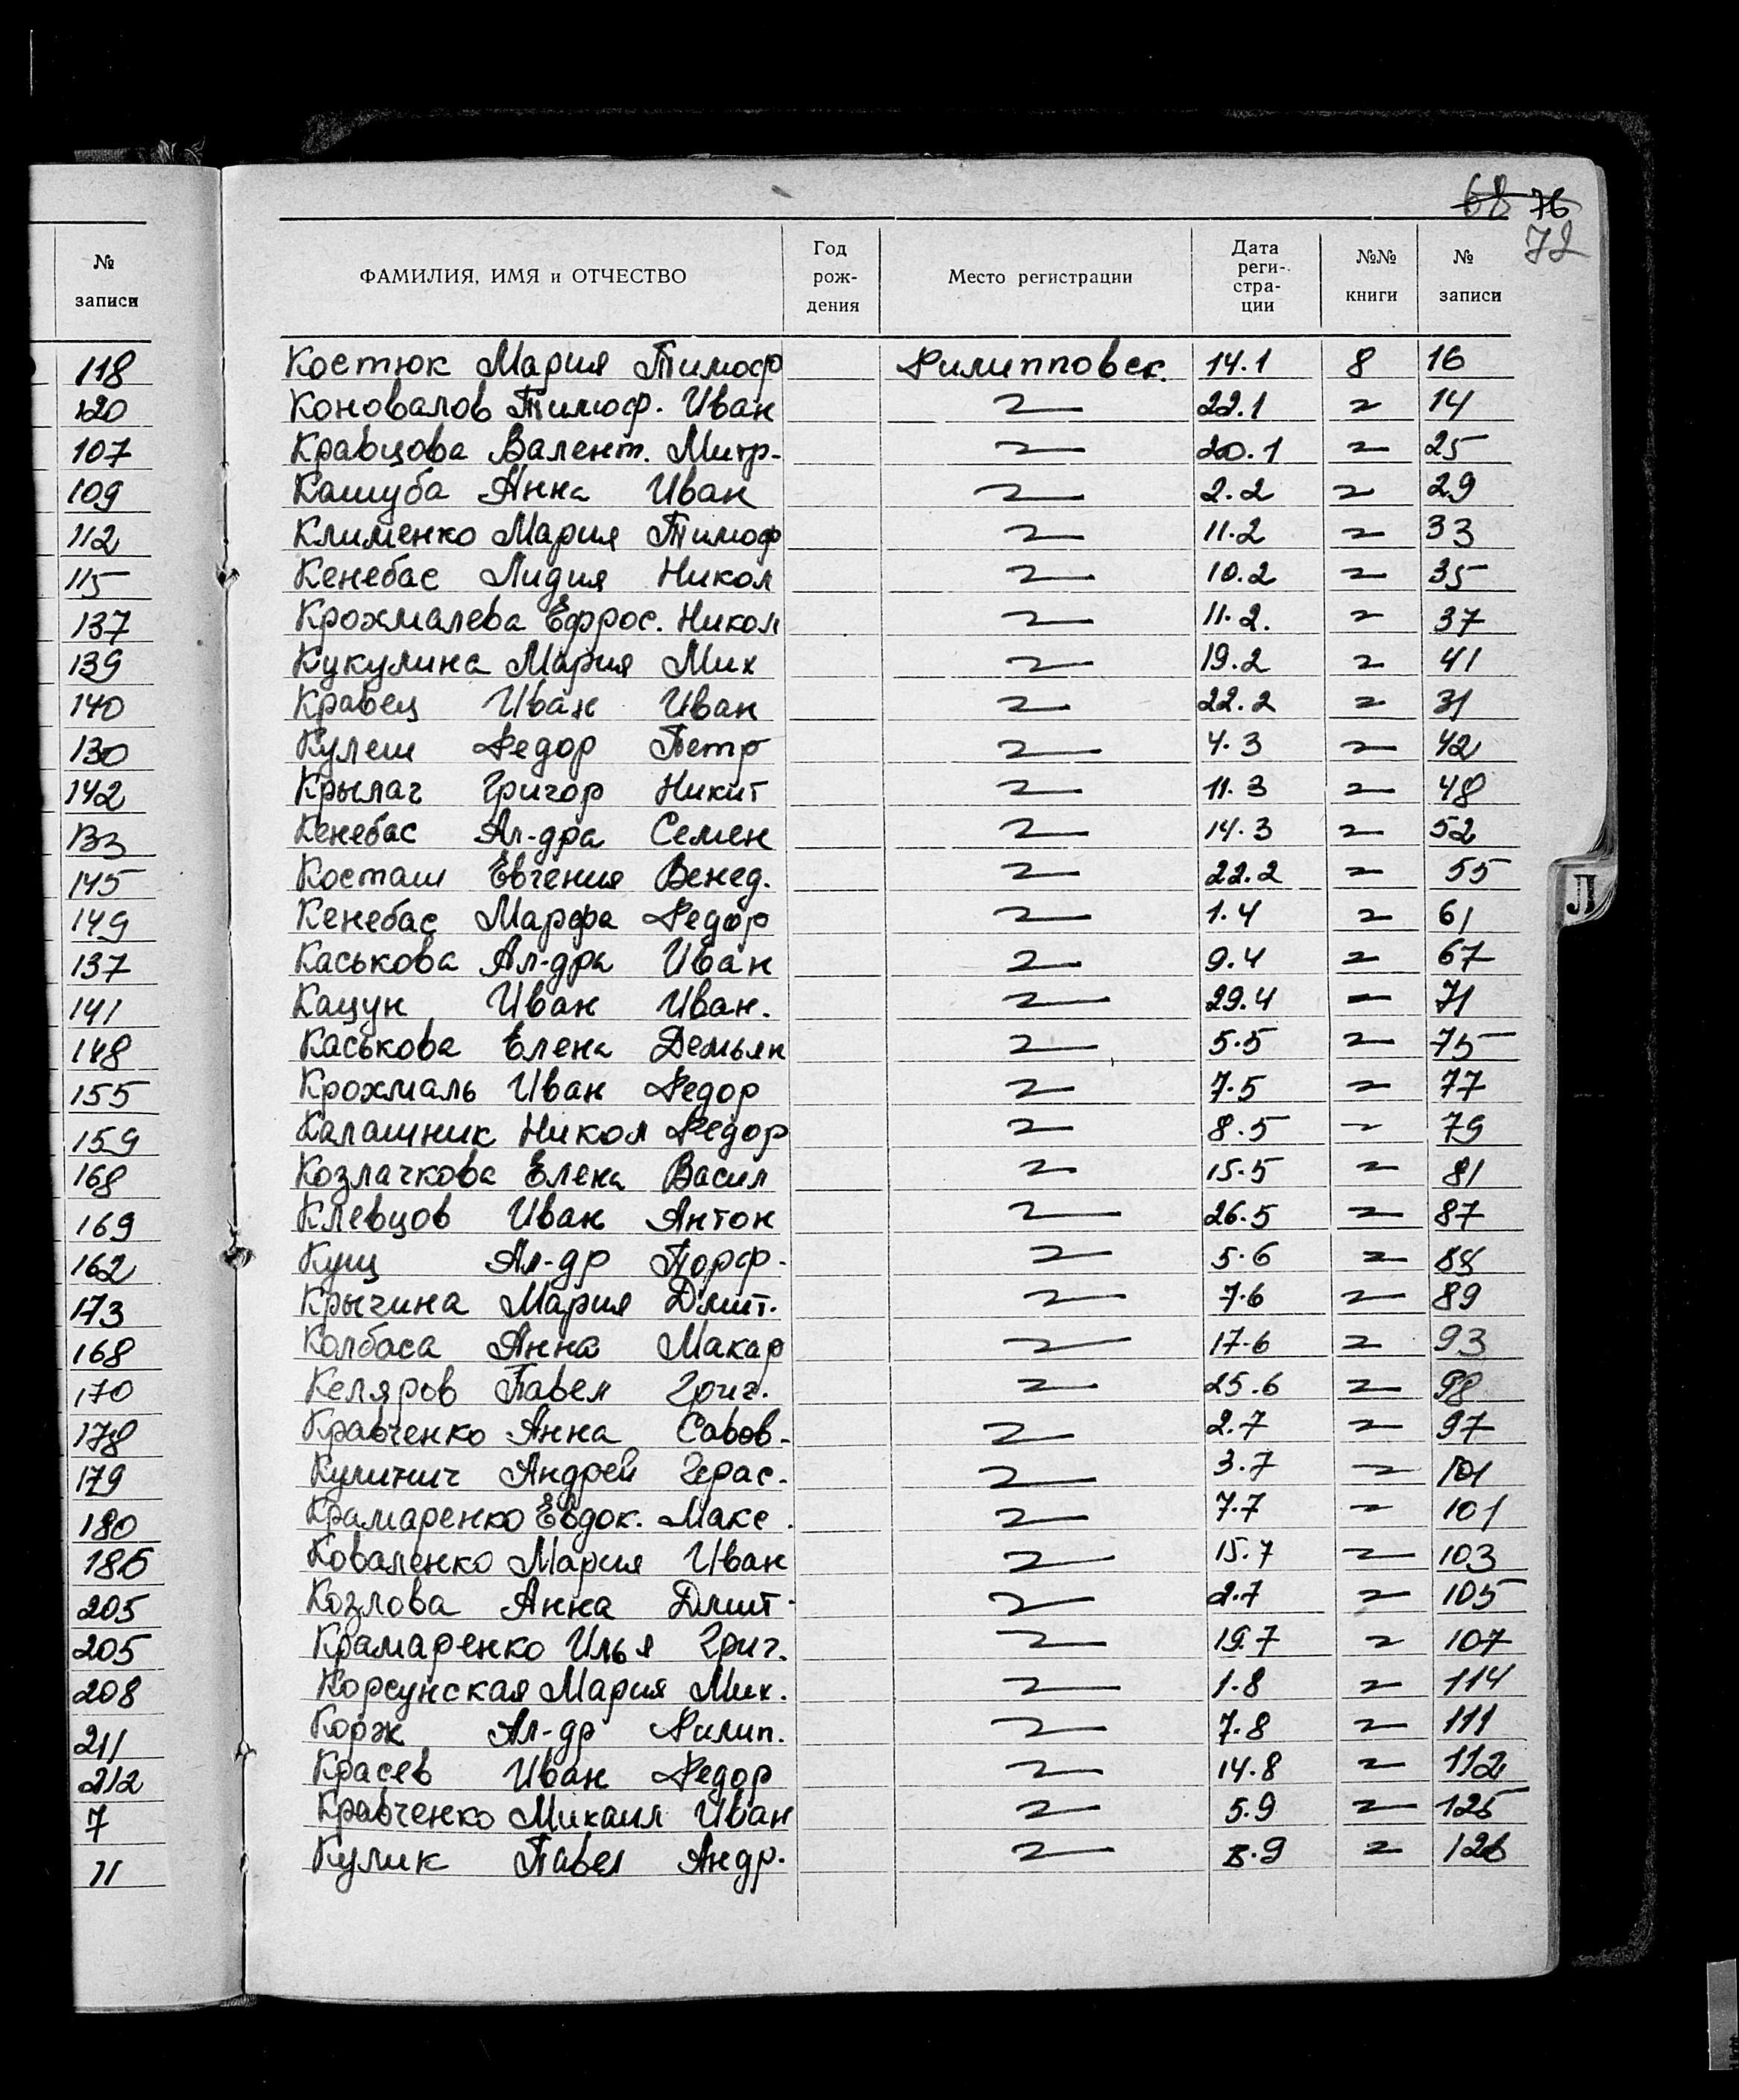 68 76
72
№
записи
118
120
107
109
112
115
137
139
140
130
142
133
145
149
137
141
148
155
159
168
169
162
173
168
170
178
179
180
186
205
205
208
211
212
7
11
ФАМИЛИЯ, ИМЯ и ОТЧЕСТВО Год рож- дения Место регистрации Дата реги- стра- ции №№ книги № записи
Костюк Мария Тимоф Филипповск. 14.1 8 16
Коновалов Тимоф. Иван 〃 22.1 〃 14
Кравцова Валент. Митр. 〃 20.1 〃 25
Кашуба Анна Иван 〃 2.2 〃 29
Клименко Мария Тимоф 〃 11.2 〃 33
Кенебас Лидия Никол 〃 10.2 〃 35
Крохмалева Ефрос. Никол 〃 11.2. 〃 37
Кукулина Мария Мих 〃 19.2 〃 41
Кравец Иван Иван 〃 22.2 〃 31
Кулеш Федор Петр 〃 4.3 〃 42
Крылач Григор Никит 〃 11.3 〃 48
Кенебас Ал-дра Семен 〃 14.3 〃 52
Косташ Евгения Венед. 〃 22.2 〃 55
Кенебас Марфа Федор 〃 1.4 〃 61
Каськова Ал-дра Иван 〃 9.4 〃 67
Кацун Иван Иван. 〃 29.4 〃 71
Каськова Елена Демьян 〃 5.5 〃 75
Крохмаль Иван Федор 〃 7.5 〃 77
Калашник Никол Федор 〃 8.5 〃 79
Козлачкова Елена Васил 〃 15.5 〃 81
Клевцов Иван Антон 〃 26.5 〃 87
Кущ Ал-др Порф. 〃 5.6 〃 88
Крычина Мария Дмит. 〃 7.6 〃 89
Колбаса Анна Макар 〃 17.6 〃 93
Келяров Павел Григ. 〃 25.6 〃 98
Кравченко Анна Савов. 〃 2.7 〃 97
Кулинич Андрей Герас. 〃 3.7 〃 101
Крамаренко Евдок. Макс. 〃 7.7 〃 101
Коваленко Мария Иван 〃 15.7 〃 103
Козлова Анна Дмит. 〃 2.7 〃 105
Крамаренко Илья Григ. 〃 19.7 〃 107
Корсунская Мария Мих. 〃 1.8 〃 114
Корж Ал-др Филип. 〃 7.8 〃 111
Красев Иван Федор 〃 14.8 〃 112
Кравченко Михаил Иван 〃 5.9 〃 125
Кулик Павел Андр. 〃 8.9 〃 126
Л